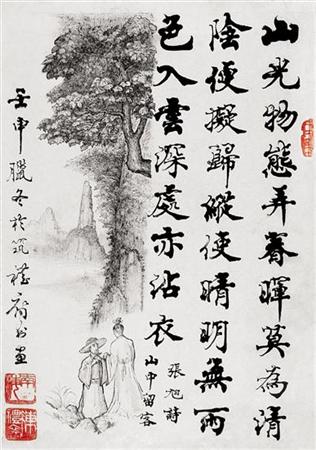 山光物態弄春暉莫為清
陰便擬歸縱使晴明無雨
色入雲深處亦沾衣
張旭詩
山中留客
壬申臘冬於筑禮齋書畫